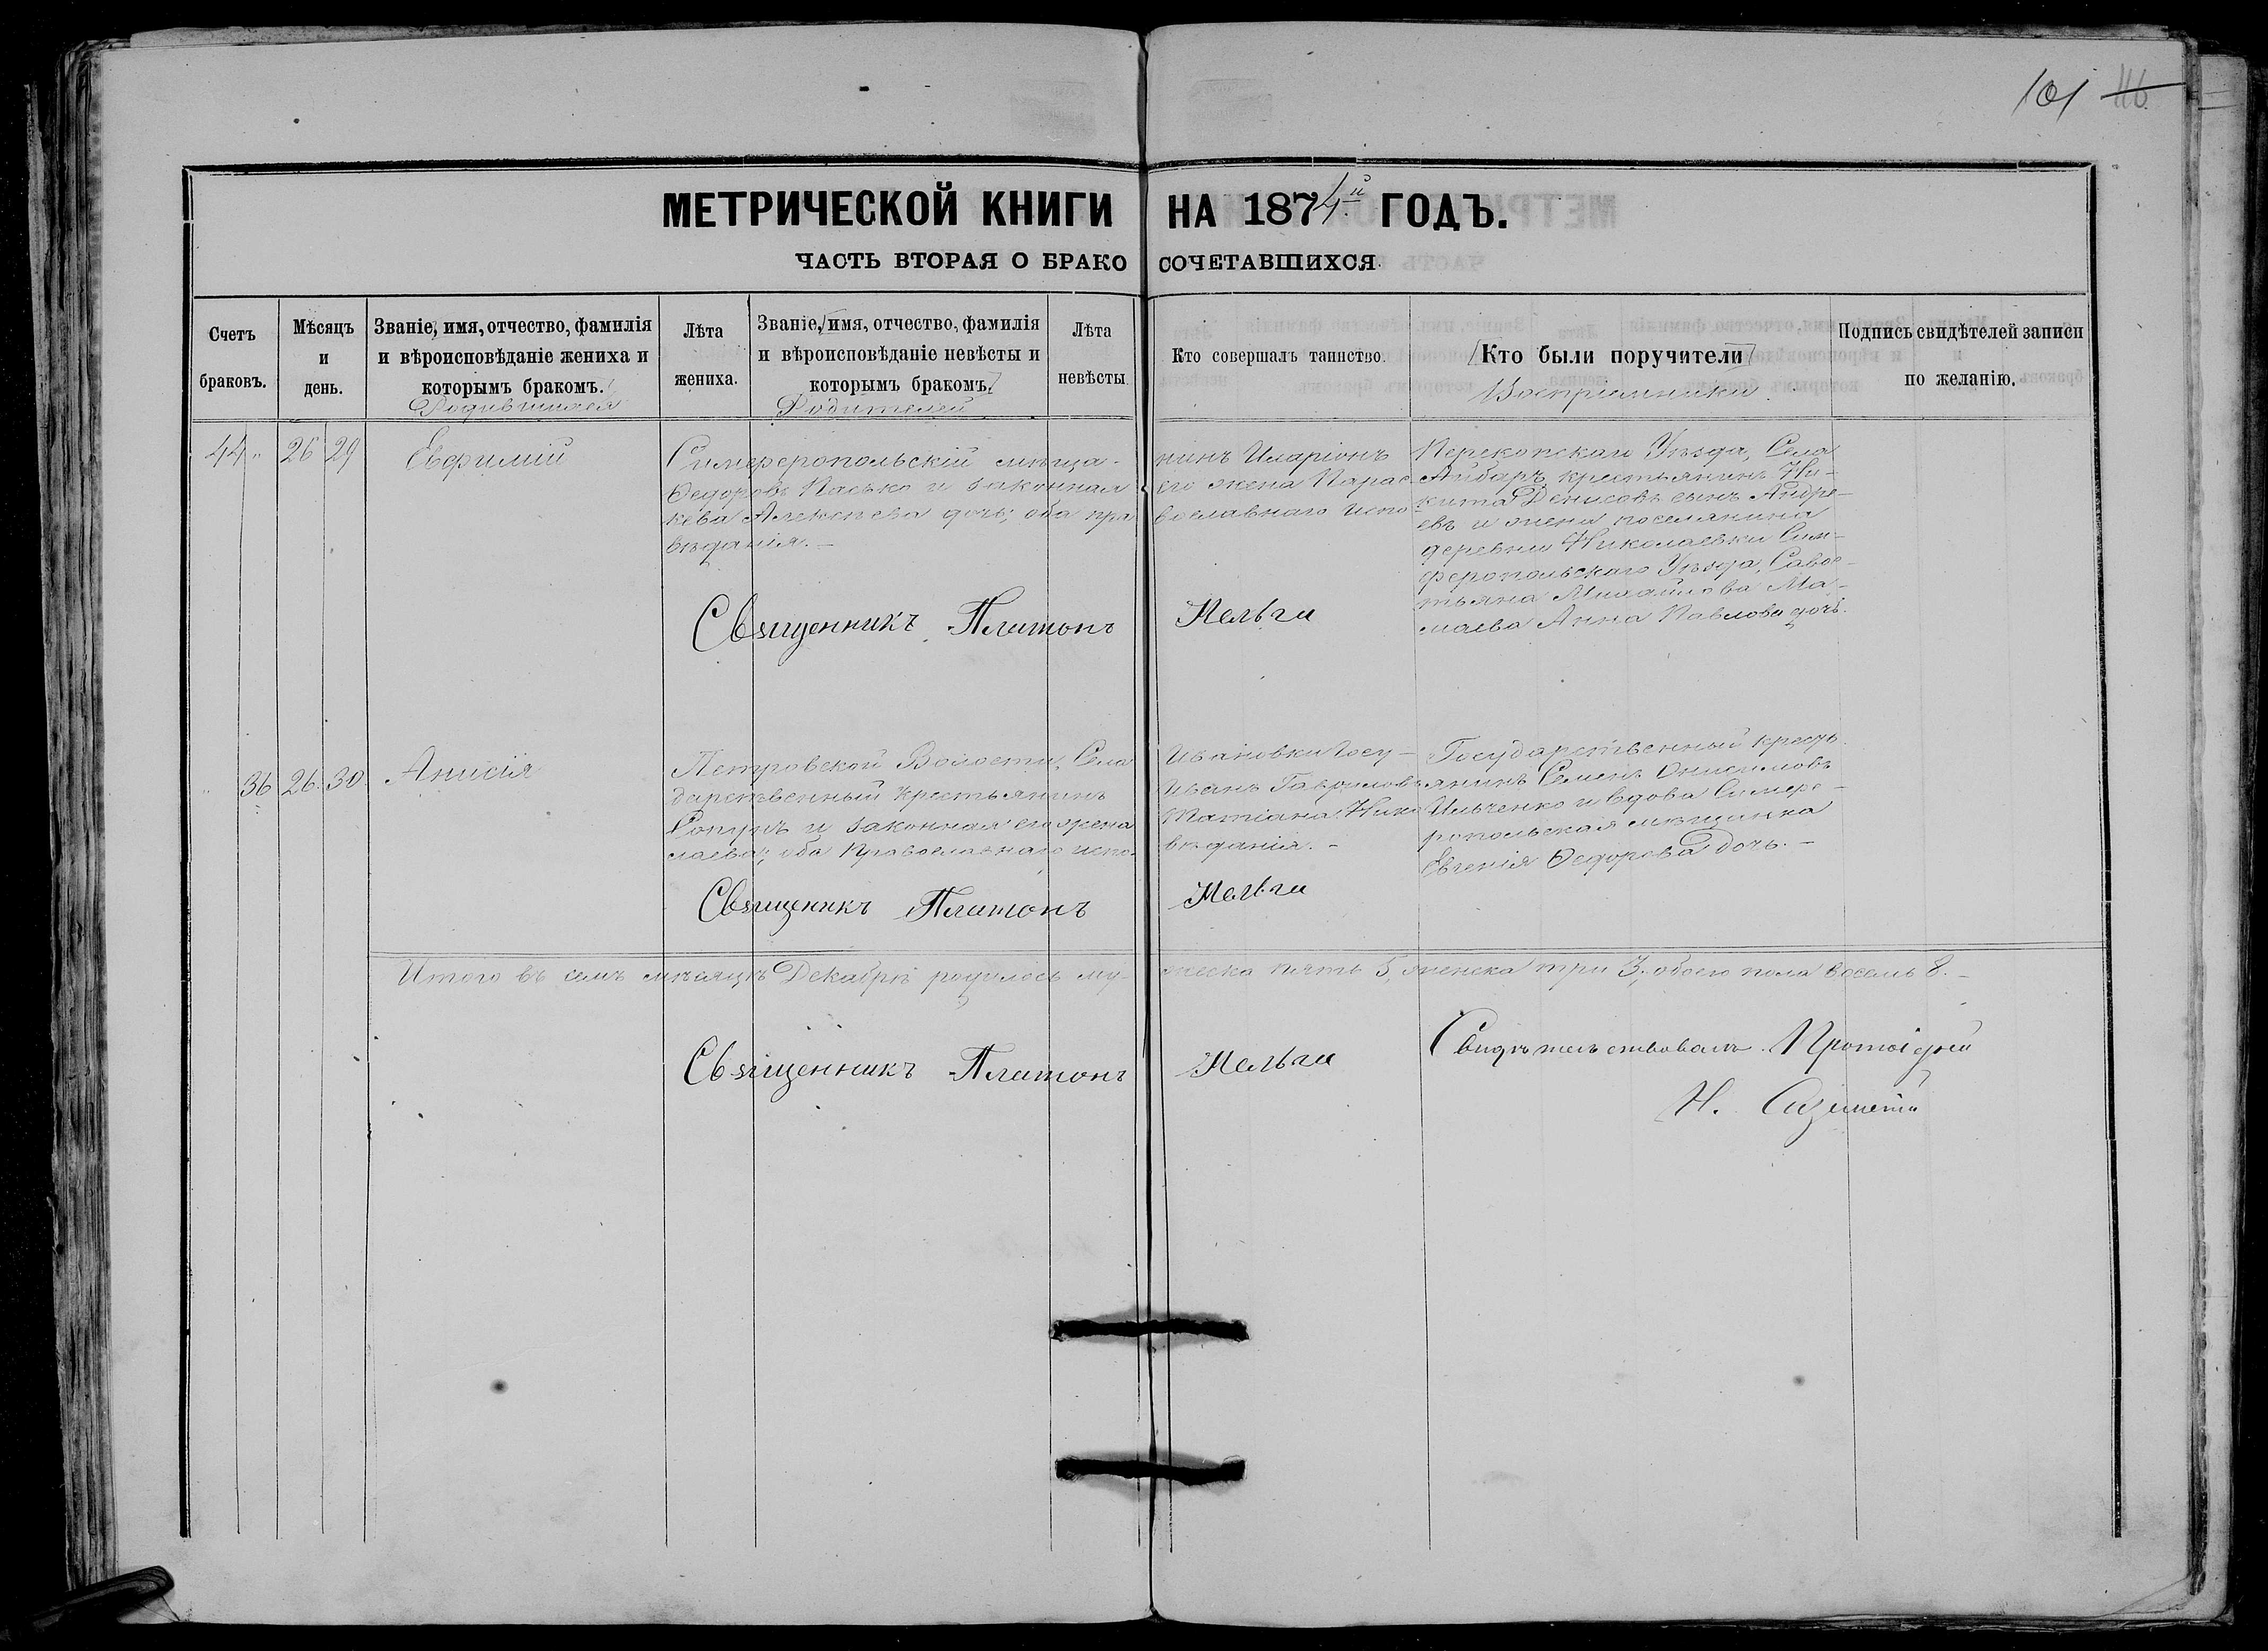 101 116
МЕТРИЧЕСКОЙ КНИГИ НА 1874й ГОДЪ.
ЧАСТЬ ВТОРАЯ О БРАКОСОЧЕТАВШИХСЯ.
Счетъ браковъ.
Мѣсяцъ и день.
Званіе, имя, отчество, фамилія и вѣроисповѣданіе жениха и которымъ бракомъ.
Родившихся
Лѣта жениха.
Званіе, имя, отчество, фамилія и вѣроисповѣданіе невѣсты и которымъ бракомъ.
Родителей
Лѣта невѣсты.
Кто совершалъ таинство.
Кто были поручители
Воспріемники.
Подпись свидѣтелей записи по желанію.
44 " 26 29 Евфимій
Симферопольскій мѣща-нинъ Иларіонъ
Ѳедоровъ Пасько и законная его жена Парас-
кева Алексѣева дочь; оба православнаго испо-
вѣданія. –
Перекопскаго Уѣзда, Села
Айбаръ крестьянинъ Ни-
кита Денисовъ сынъ Андре-
евъ и жена поселянина
деревни Николаевки Сим-
феропольскаго Уѣзда, Савос-
тьяна Михайлова Ма-
маева Анна Павлова дочь.
Священникъ Платонъ
" 36 26 30 Анисія
Петровской Волости, Села Ивановки Госу-
дарственный крестьянинъ Иванъ Гавриловъ
и законная его жена Татіана Нико-
лаева; оба Православнаго испо-
вѣданія. –
Государственный кресть-
янинъ Семенъ Онисимовъ
Ильченко и вдова Симфе-
ропольская мѣщанка
Евгенія Ѳедорова дочь. –
Священикъ Платонъ
Итого въ семъ мѣсяцѣ Декабрѣ родилось мужеска пять 5, женска три 3, обоего пола восемь 8. –
Священникъ Платонъ
Свидѣтельствовалъ Протоіерей
Н.